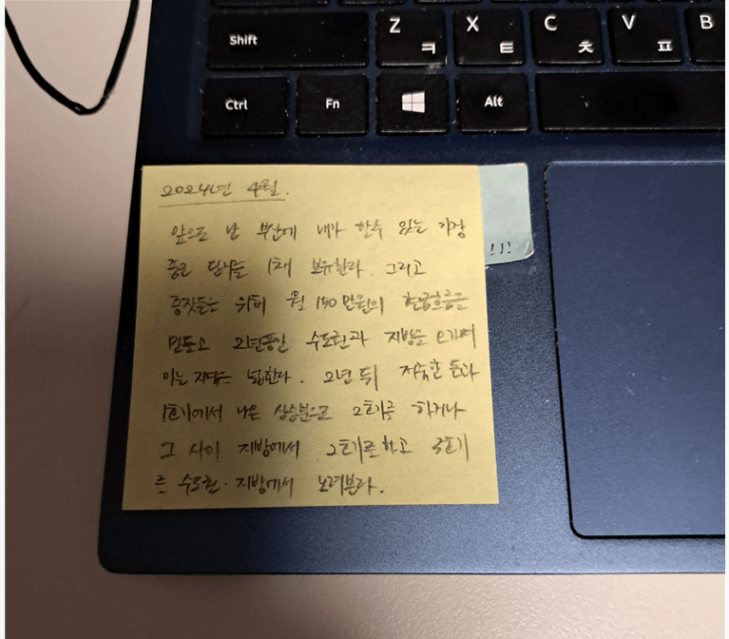 Shift
Z ㅋ
X ㅌ
C ㅊ
V ㅍ
B
Ctrl
Fn
Alt
2024년 4월.
앞으로 난 부산에 내가 할수 있는 가장
좋은 단지를 1채 보유한다. 그리고
종잣돈을 위해 월 150만원의 현금흐름을
만들고 2년동안 수도권과 지방을 오가며
아는 지역을 넓힌다. 2년 뒤 저축한 돈과
1호기에서 나온 상승분으로 2호기를 하거나
그 사이 지방에서 2호기를 하고 3호기
를 수도권·지방에서 노려본다.
!!!